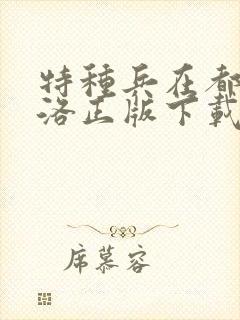 特種兵在都
洛正版下載
席慕容